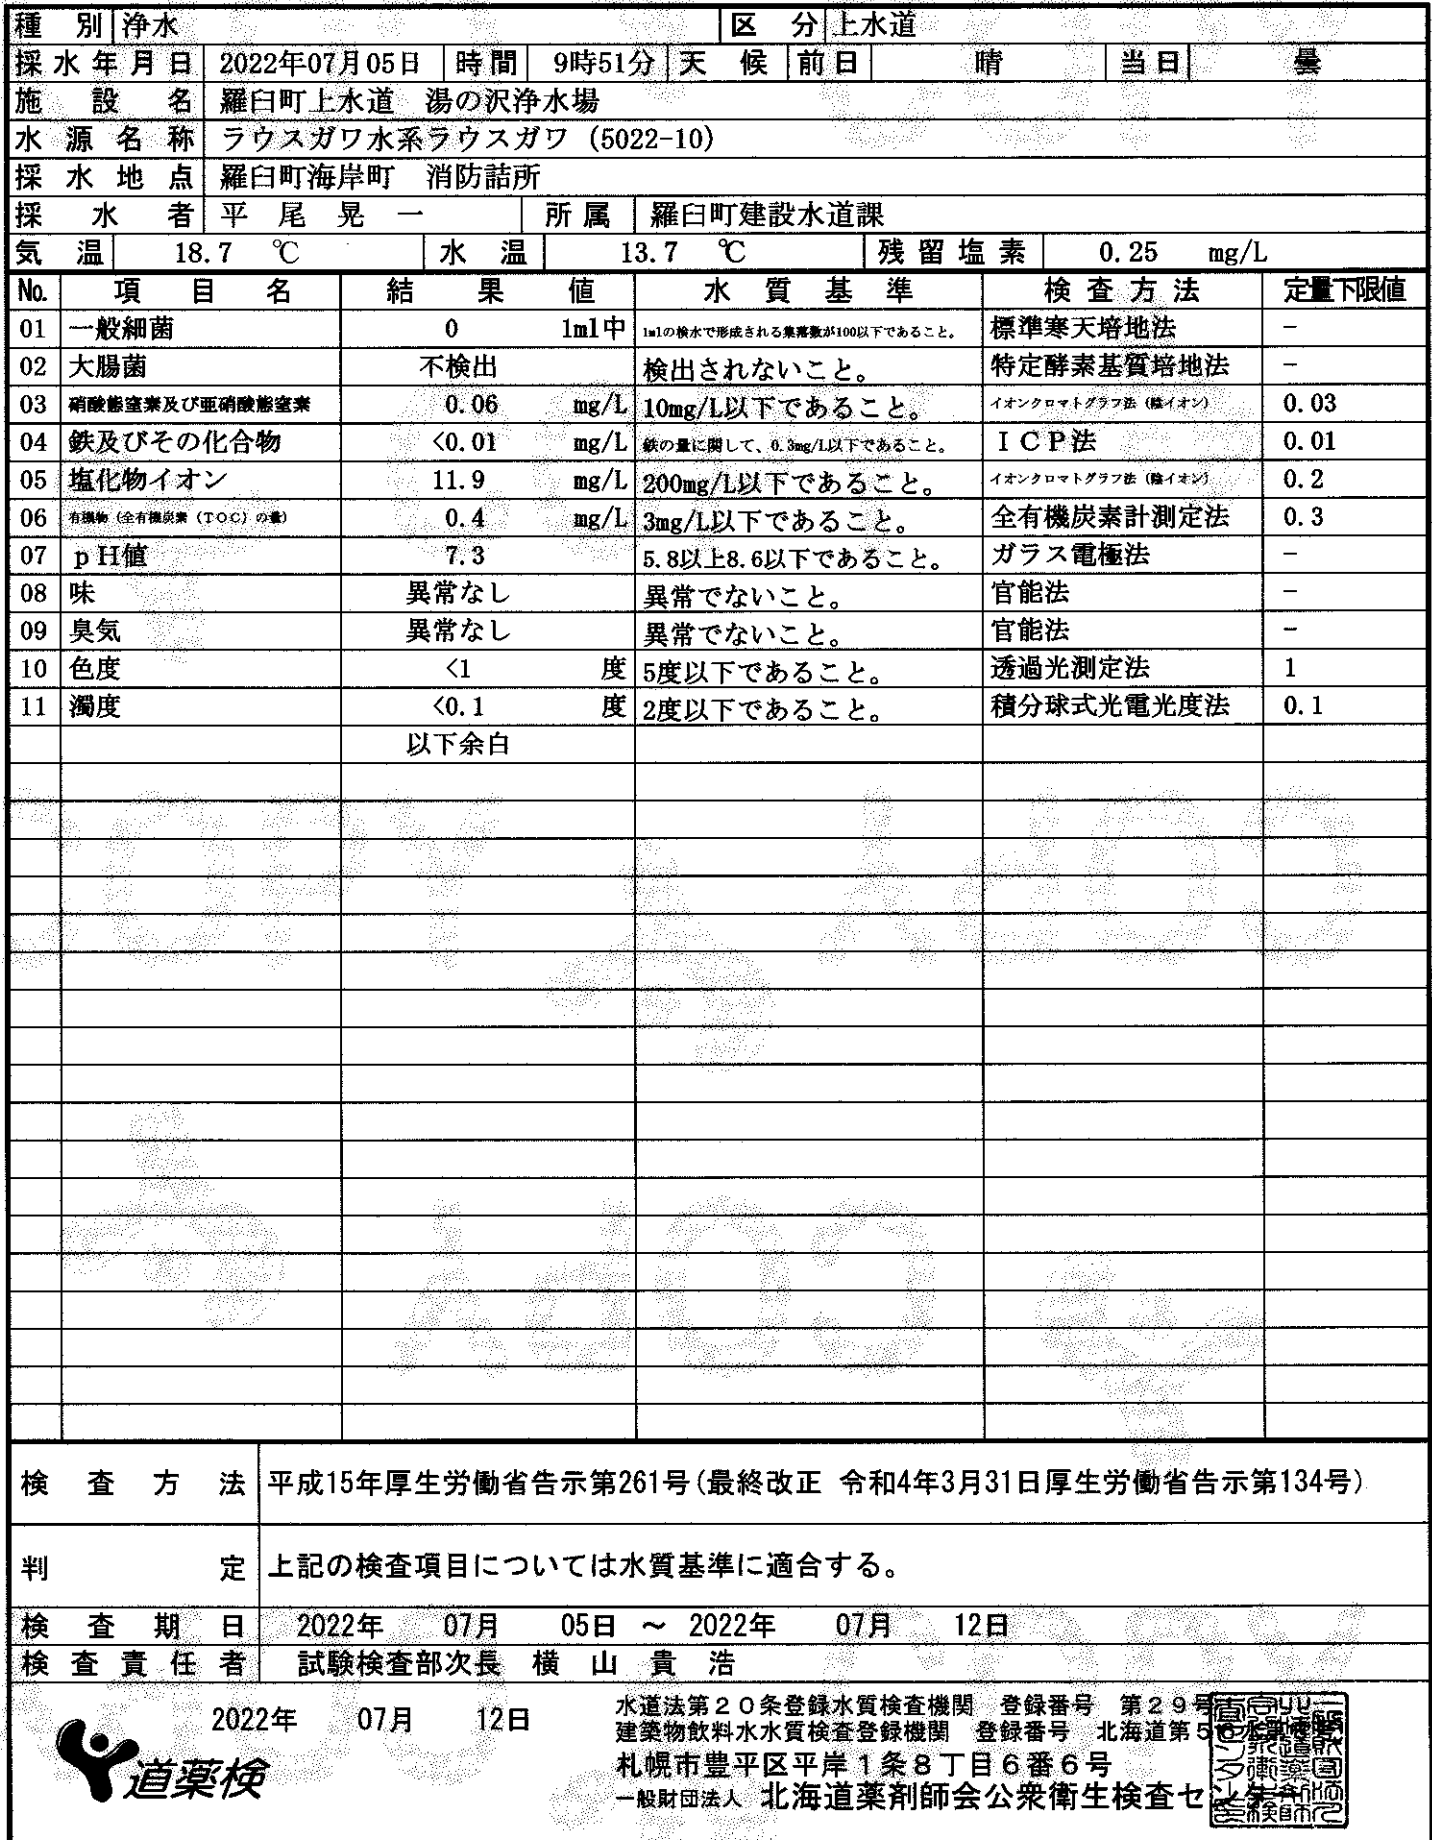 種別 浄水 区分 上水道
採水年月日 2022年07月05日 時間 9時51分 天候 前日 晴 当日 曇
施設名 羅臼町上水道 湯の沢浄水場
水源名称 ラウスガワ水系ラウスガワ (5022-10)
採水地点 羅臼町海岸町 消防詰所
採水者 平尾晃一 所属 羅臼町建設水道課
気温 18.7 ℃ 水温 13.7 ℃ 残留塩素 0.25 mg/L
No. 項目名 結果値 水質基準 検査方法 定量下限値
01 一般細菌 0 1ml中 1mlの検水で形成される集落数が100以下であること。 標準寒天培地法 -
02 大腸菌 不検出 検出されないこと。 特定酵素基質培地法 -
03 硝酸態窒素及び亜硝酸態窒素 0.06 mg/L 10mg/L以下であること。 イオンクロマトグラフ法（陰イオン） 0.03
04 鉄及びその化合物 <0.01 mg/L 鉄の量に関して、0.3mg/L以下であること。 ICP法 0.01
05 塩化物イオン 11.9 mg/L 200mg/L以下であること。 イオンクロマトグラフ法（陰イオン） 0.2
06 有機物（全有機炭素（TOC）の量） 0.4 mg/L 3mg/L以下であること。 全有機炭素計測定法 0.3
07 pH値 7.3 5.8以上8.6以下であること。 ガラス電極法 -
08 味 異常なし 異常でないこと。 官能法 -
09 臭気 異常なし 異常でないこと。 官能法 -
10 色度 <1 度 5度以下であること。 透過光測定法 1
11 濁度 <0.1 度 2度以下であること。 積分球式光電光度法 0.1
以下余白
検査方法 平成15年厚生労働省告示第261号(最終改正 令和4年3月31日厚生労働省告示第134号)
判定 上記の検査項目については水質基準に適合する。
検査期日 2022年 07月 05日 ～ 2022年 07月 12日
検査責任者 試験検査部次長 横山貴浩
2022年 07月 12日
水道法第20条登録水質検査機関 登録番号 第29号
建築物飲料水水質検査登録機関 登録番号 北海道第5
札幌市豊平区平岸1条8丁目6番6号
一般財団法人 北海道薬剤師会公衆衛生検査センター
道薬検